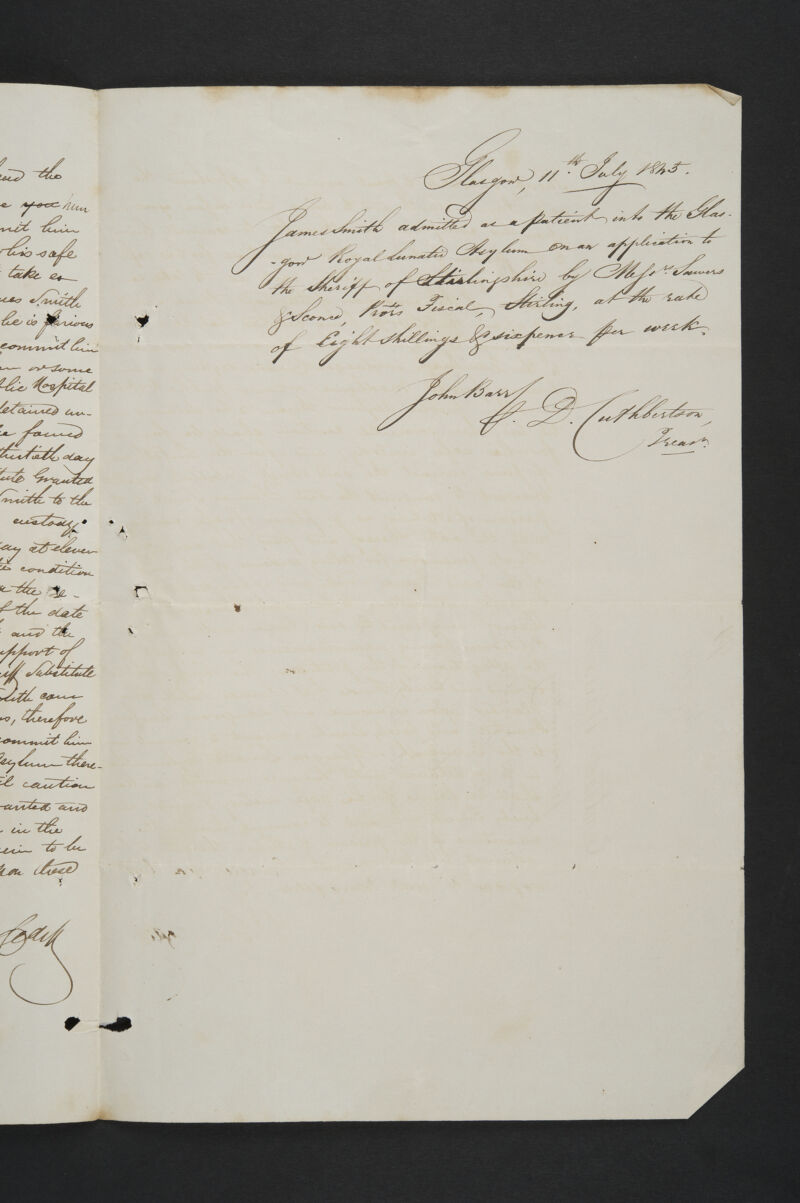 end the
e you him
mit him
his safe
take en
mes Smith
he is furious
commit him
m or some
blic Hospital
detained un-
be found
thirtieth day
tute Granted
Smith to the
custody
ay at eleven
te condition
n the se-
f the date
and the
upport of
iff Substitute
Smith cam
s, therefore
commit him
Asylum there-
il caution
anted and
in the
rein to be
pon these
Glasgow, 11th July 1845.
James Smith admitted as a patient into the Glas-
-gow Royal Lunatic Asylum on an application to
the Sheriff of Stirlingshire by Messrs Sawers
& Sconce, Prors Fiscal, Stirling, at the rate
of Eight shillings & sixpence per week.
John Barr
D. Cuthbertson,
Treasr.